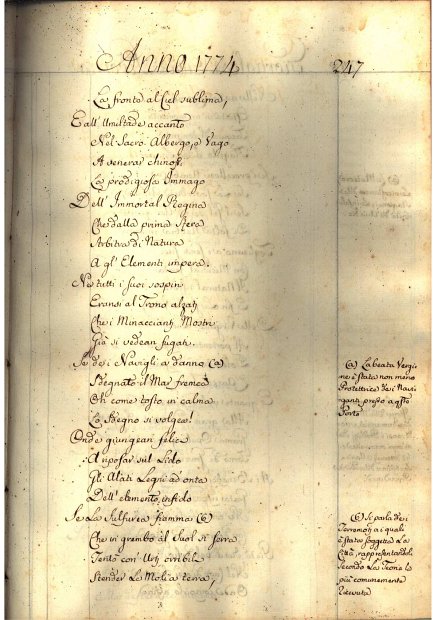 Anno 1774
247
La fronte al Ciel sublima,
E all' Umiltade accanto
Nel Sacro Albergo, e Vago
A venerar chinosi
La prodigiosa Immago
Dell' Immortal Regina
Che dalla prima Sfera
Arbitra di Natura
A gl' Elementi impera.
Ne tutti i suoi sospiri
Eransi al Trono alzati
Che i Minaccianti Mostri
Già si vedean fugati.
Se dei Navigli a danno (a)
Sdegnato il Mar fremea
Oh come tosto in calma
Lo Sdegno si volgea!
Onde giungean felice
A riposar sul Lido
Gli Alati Legni ad onta
Dell' elemento infido
Se la Sulfurea fiamma (b)
Che in grembo al Suol si serra
Tentò con Urti orribili
Scuoter la Molia terra,
(a) La beata Vergi
ne è stata non meno
Protettrice dei Navi
ganti presso a qsto
Porto
(b) Si parla dei
Terremoti a i quali
è stata soggetta la
Città, rappresentandoli
Secondo la Teoria la
più comunemente
Ricevuta